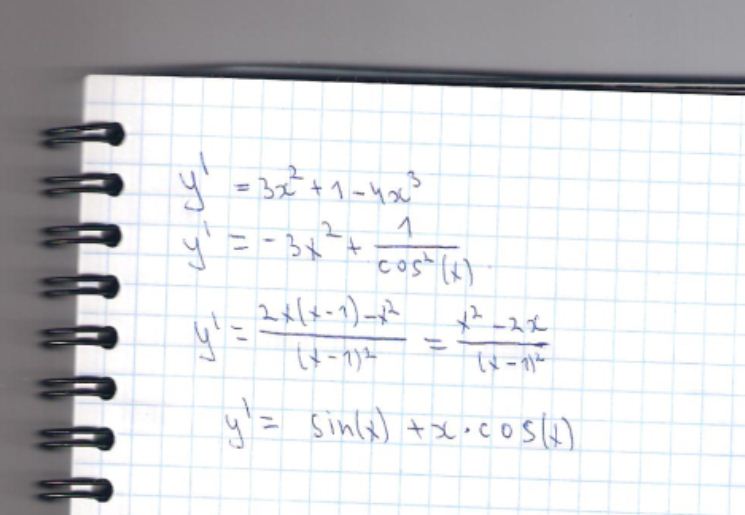 y' = 3x² + 1 - 4x³
y' = -3x² + 1/cos²(x)
y' = (2x(x-1)-x²)/(x-1)² = (x²-2x)/(x-1)²
y' = sin(x) + x·cos(x)